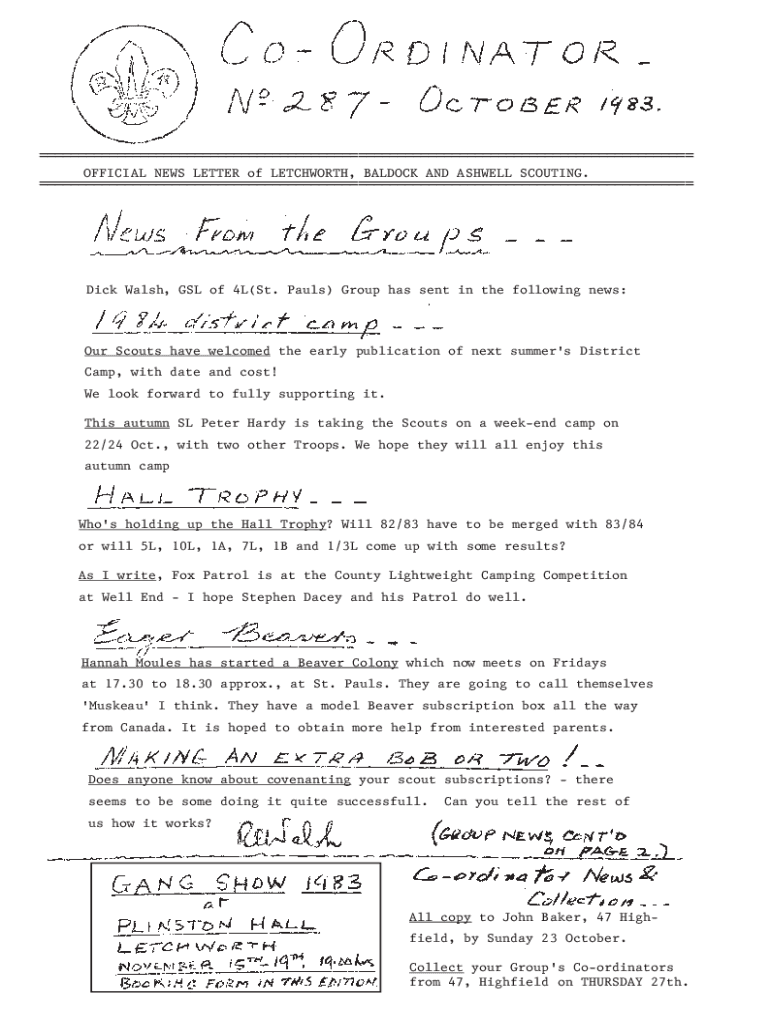 CO-ORDINATOR -
Nº 287 - OCTOBER 1983.
OFFICIAL NEWS LETTER of LETCHWORTH, BALDOCK AND ASHWELL SCOUTING.
News From the Groups - - -
Dick Walsh, GSL of 4L(St. Pauls) Group has sent in the following news:
1984 district camp - - -
Our Scouts have welcomed the early publication of next summer's District
Camp, with date and cost!
We look forward to fully supporting it.
This autumn SL Peter Hardy is taking the Scouts on a week-end camp on
22/24 Oct., with two other Troops. We hope they will all enjoy this
autumn camp
HALL TROPHY - - -
Who's holding up the Hall Trophy? Will 82/83 have to be merged with 83/84
or will 5L, 10L, 1A, 7L, 1B and 1/3L come up with some results?
As I write, Fox Patrol is at the County Lightweight Camping Competition
at Well End - I hope Stephen Dacey and his Patrol do well.
Eager Beavers - - -
Hannah Moules has started a Beaver Colony which now meets on Fridays
at 17.30 to 18.30 approx., at St. Pauls. They are going to call themselves
'Muskeau' I think. They have a model Beaver subscription box all the way
from Canada. It is hoped to obtain more help from interested parents.
MAKING AN EXTRA BOB OR TWO! - -
Does anyone know about covenanting your scout subscriptions? - there
seems to be some doing it quite successfull. Can you tell the rest of
us how it works?
RWalsh
(GROUP NEWS CONT'D
ON PAGE 2.)
GANG SHOW 1983
at
PLINSTON HALL
LETCHWORTH
NOVEMBER 15TH-19TH, 19.00hrs
BOOKING FORM IN THIS EDITION
Co-ordinator News &
Collection - - -
All copy to John Baker, 47 High-
field, by Sunday 23 October.
Collect your Group's Co-ordinators
from 47, Highfield on THURSDAY 27th.